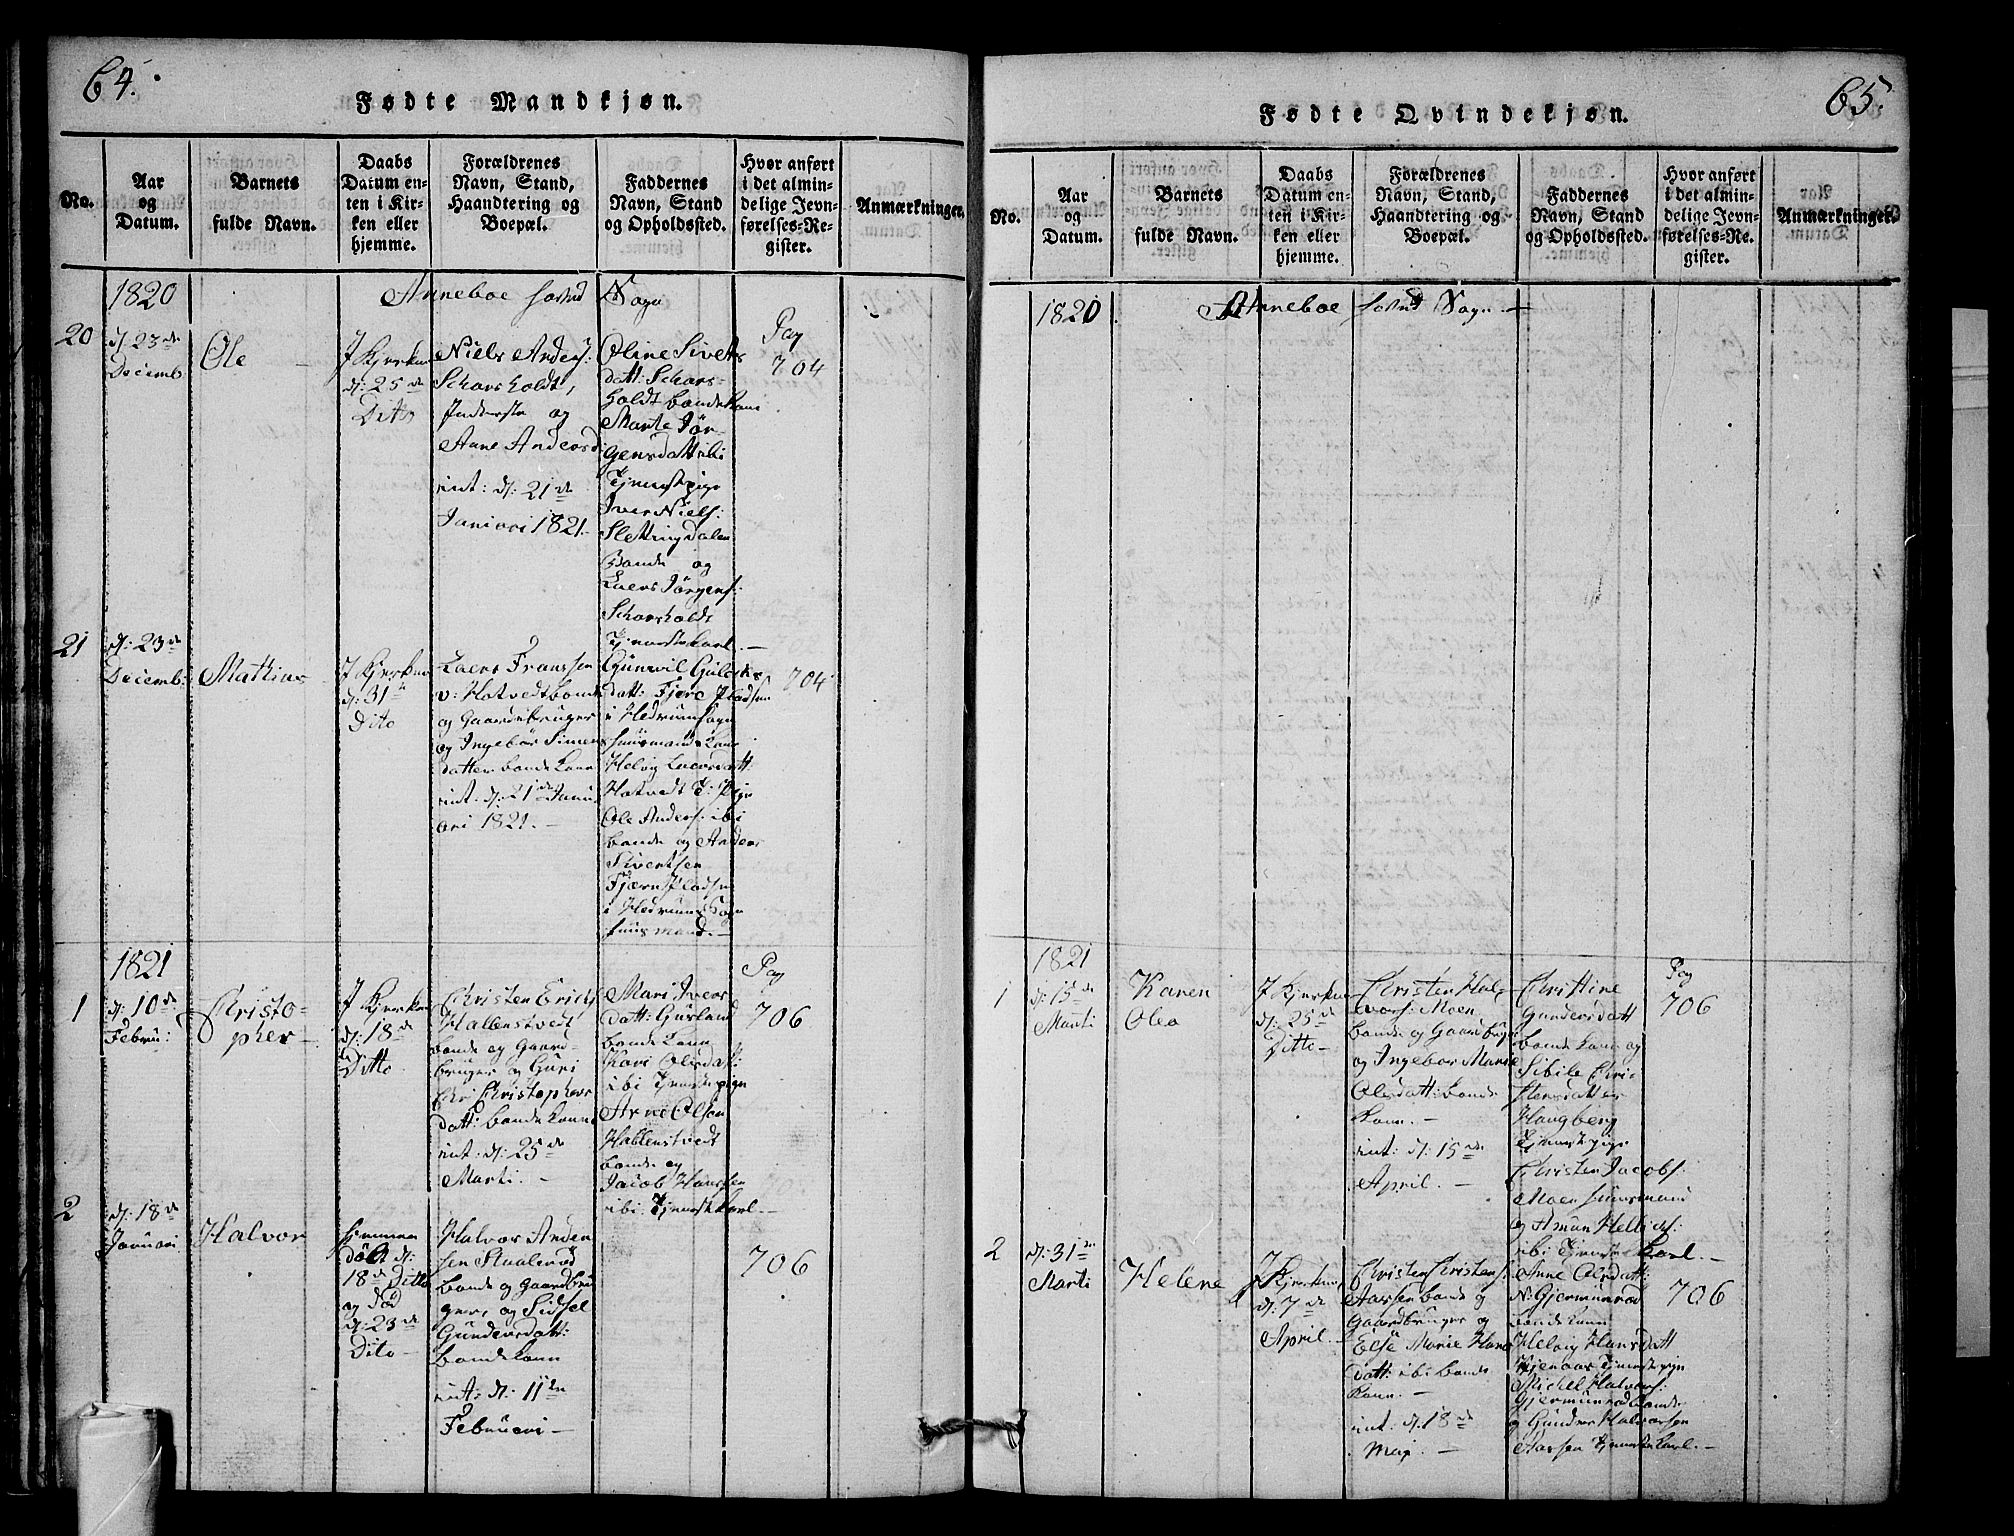 64.
Fødte Mandkjøn.
No.
Aar
og
Datum.
Barnets
fulde Navn.
Daabs
Datum en-
ten i Kir-
ken eller
hjemme.
Forældrenes
Navn, Stand,
Haandtering og
Boepæl.
Faddernes
Navn, Stand
og Opholdssted.
Hvor anført
i det almin-
delige Jevn-
førelses-Re-
gister.
Anmærkninger.
1820
Anneboe Sogn
20
d: 23de
Decemb
Ole
I Kjerken
d: 25de
Ditto
Niels Anders:
Schorsholdt,
Inderste og
Anne Andersd
int: d: 21de
Januari 1821.
Oline Siverts
datt: Schors-
holdt bondekone
Marte Jör-
gensdatt ibi
Tjenestpige
Iver Niels:
Slettingdalen
Bonde og
Laers Jörgens:
Schorsholdt
Tjenestekarl.
Pag
704
21
d: 23de
Decemb:
Mathias
I Kjerken
d: 31te
Ditto
Laers Franssen
v: Hotvedt bonde
og Gaardebruger
og Ingebör Simens
datter bondekone
int: d: 21de Janu
ari 1821.
Günvil Gulichs
datt: Fjære Pladsen
i Hedrum Sogn
huusmands kone
Helvig Laersdatt:
Hotvedt T: Pige
Ole Anders: ibi
bonde og Anders
Sivertsen
Fjære Pladsen
i Hedrum Sogn
huusmand.
704
1821
1
d: 10de
Febru:
Christo-
pher
I Kjerken
d: 18de
Ditto
Christen Erichs
Hallenstvedt
bonde og Gaard-
bruger og Guri
Christophers
datt: bondekone
int: d: 25de
Marti.
Mari Ivers
datt: Gurland
bondekone
Kari Olsdatt:
ibi Tjenestpige
Arne Olsen
Hallenstvedt
bonde og
Jacob Hanssen
ibi Tjenestekarl.
Pag
706
2
d: 18de
Januari
Halvor
hjemme
döbt d:
18de Ditto
og död
d: 23de
Dito
Halvor Ander
sen Staalerød
bonde og Gaardbru
ger, og Sidsel
Gundersdatt:
bondekone
int: d: 11te
Februari
706
65.
Fødte Qvindekjøn.
No.
Aar
og
Datum.
Barnets
fulde Navn.
Daabs
Datum en-
ten i Kir-
ken eller
hjemme.
Forældrenes
Navn, Stand,
Haandtering og
Boepæl.
Faddernes
Navn, Stand
og Opholdssted.
Hvor anført
i det almin-
delige Jevn-
førelses-Re-
gister.
Anmærkninger.
1820
Anneboe Sogn
1821
1
d: 15de
Marti
Karen
Olea
I Kjerken
d: 25de
Ditto
Christen Hal-
vors: Moen
bonde og Gaardbruger
og Ingebor Marie
Olesdatt: bonde
kone.
int: d: 15de
April.
Christine
Gundersdatt
bondekone og
Sibile Chri-
stensdatter
Haugberg
Tjenestpige
Christen Jacobs:
Moen huusmand
og Amun Hellies:
ibi Tjenestekarl.
Pag
706
2
d: 31te
Marti
Helene
I Kjerken
d: 7de
April.
Christen Christens:
Aarsen bonde og
Gaardbruger og
Else Marie Hans
datt: ibi bonde
kone.
int: d: 18de
Maji
Anne Olesdatt:
N: Gjermundrød
bondekone
Helvig Hansdatt
Tjenestpige
Michel Halvors:
Gjermundrød bonde
og Gunder Halvorsen
Aarsen Tjenestekarl.
706